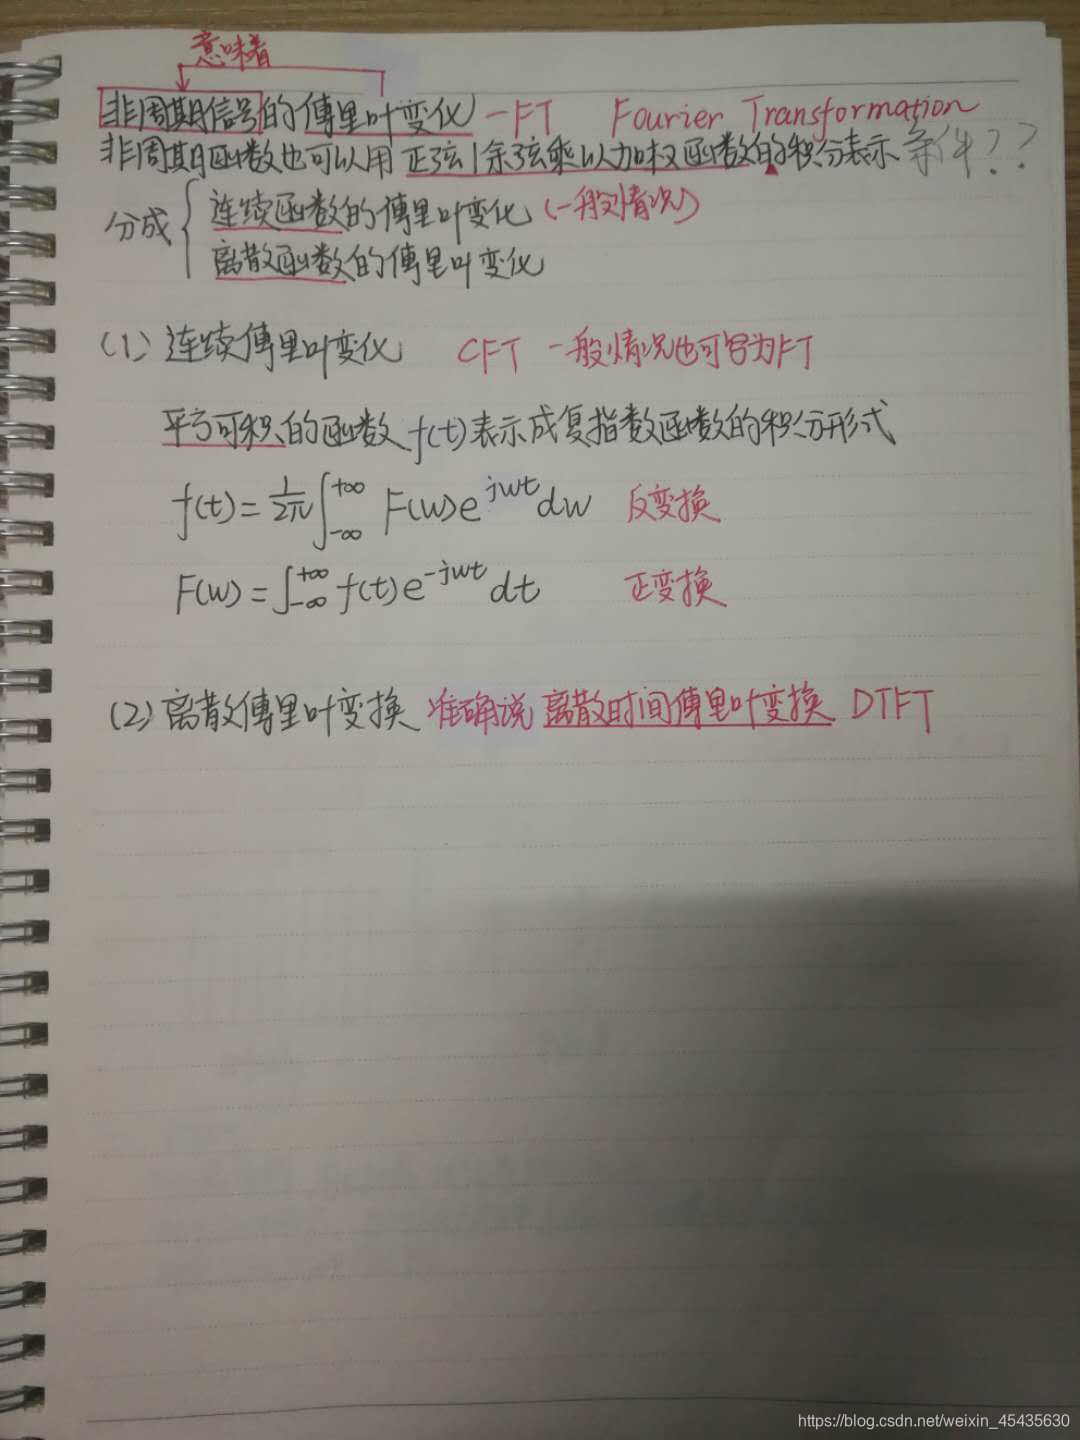 意味着
非周期信号的傅里叶变化 — FT Fourier Transformation
非周期函数也可以用 正弦/余弦乘以加权函数的积分表示 条件??
分成 { 连续函数的傅里叶变化 (一般情况)
离散函数的傅里叶变化
(1) 连续傅里叶变化 CFT 一般情况也可写为FT
平方可积的函数 f(t)表示成复指数函数的积分形式
f(t) = 1/2π ∫_{-∞}^{+∞} F(w)e^{jwt}dw 反变换
F(w) = ∫_{-∞}^{+∞} f(t)e^{-jwt}dt 正变换
(2) 离散傅里叶变换 准确说 离散时间傅里叶变换 DTFT
https://blog.csdn.net/weixin_45435630